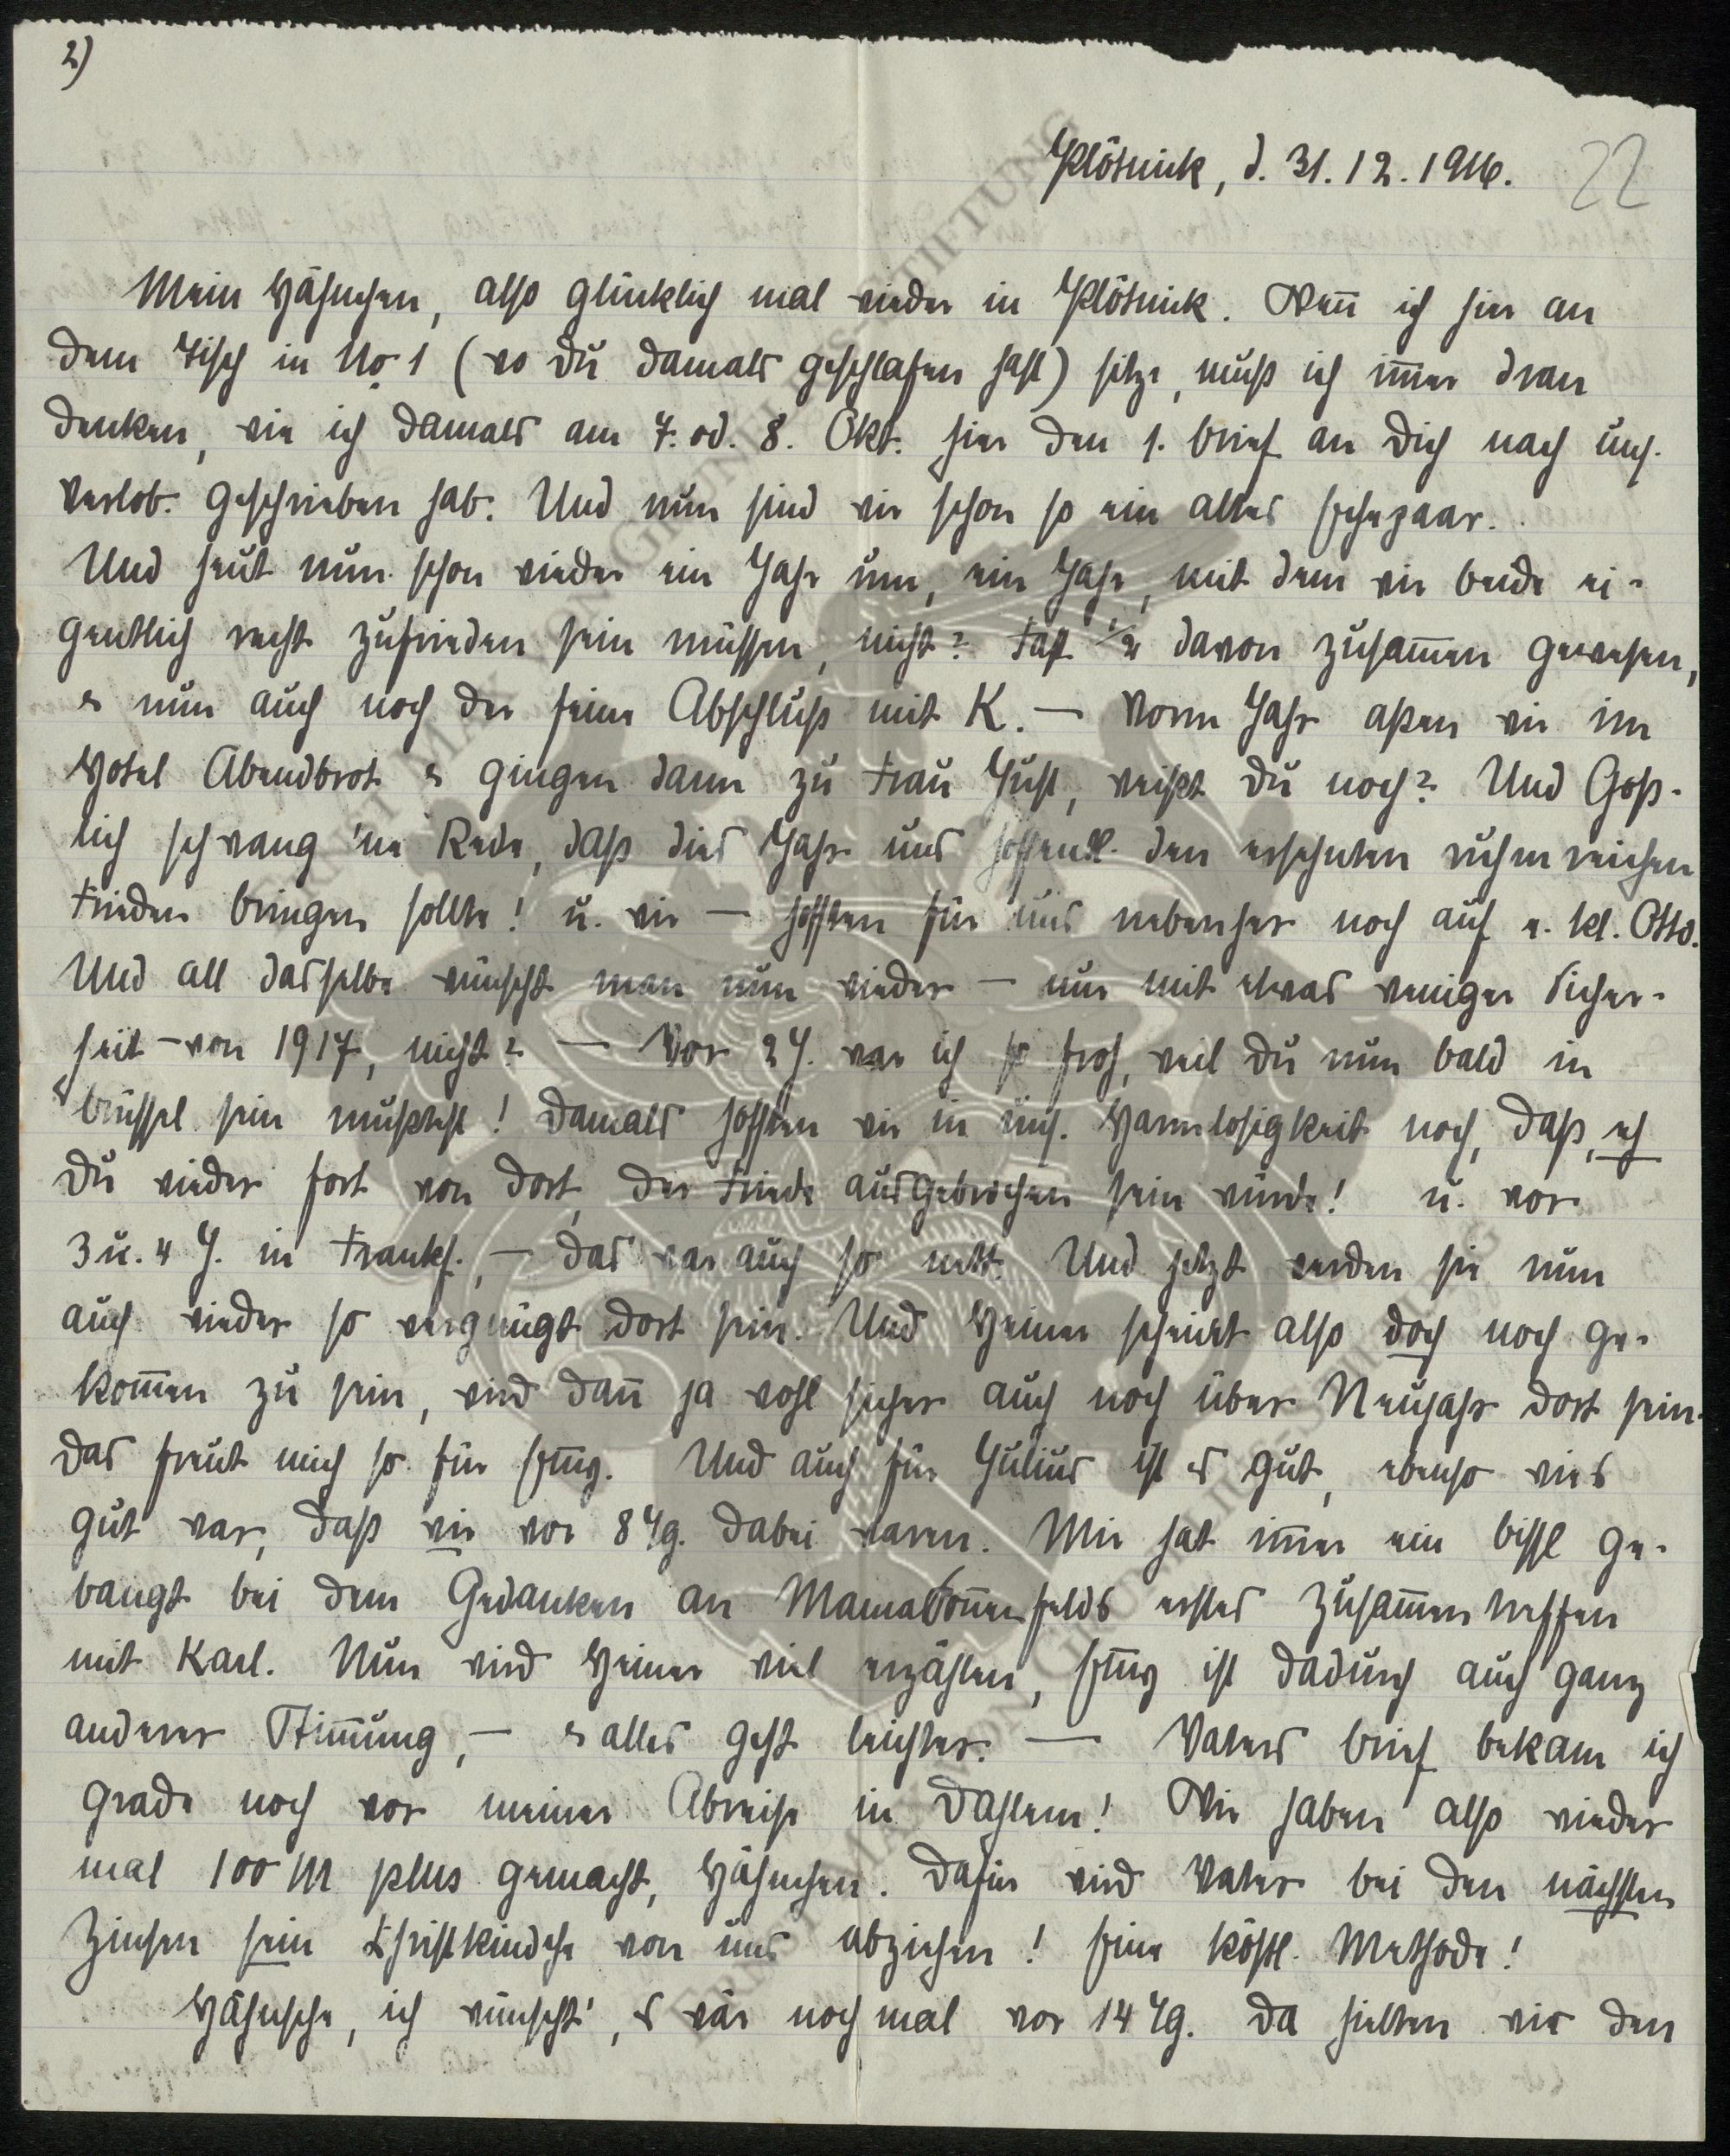 2)
Klösnick, d. 31.12.1916.
22
Mein Hähnchen, also glücklich mal wieder in Klösnick. Wenn ich hier an
dem Tisch in No 1 (wo Du damals geschlafen hast) sitze, muß ich immer dran
denken, wie ich damals am 7. od. 8. Okt. hier den 1. Brief an Dich nach uns.
Verlob. geschrieben hab. Und nun sind wir schon so ein altes Ehepaar.
Und heut nun schon wieder ein Jahr um, ein Jahr, mit dem wir beide ei-
gentlich recht zufrieden sein müssen, nicht? Fast 1/2 davon zusammen gewesen,
& nun auch noch der feine Abschluß mit K. — Vorm Jahr aßen wir im
Hotel Abendbrot & gingen dann zu Frau Just, weißt Du noch? Und Goß-
lich schwang 'ne Rede, daß dies Jahr uns hoffentl. den ersehnten ruhmreichen
Frieden bringen sollte! u. wir — hofften für uns nebenher noch auf e. kl. Otto.
Und all dasselbe wünscht man nun wieder — nur mit etwas weniger Sicher-
heit — von 1917, nicht? — Vor 2 J. war ich so froh, weil Du nun bald in
Brüssel sein mußtest! Damals hofften wir in uns. Harmlosigkeit noch, daß, eh
Du wieder fort von dort, der Friede ausgebrochen sein würde! u. vor
3 u. 4 J. in Frankf., — das war auch so nett. Und jetzt werden sie nun
auch wieder so vergnügt dort sein. Und Heiner scheint also doch noch ge-
kommen zu sein, wird dann ja wohl sicher auch noch über Neujahr dort sein.
Das freut mich so für Emy. Und auch für Julius ist es gut, ebenso wies
gut war, daß wir vor 8 Tg. dabei waren. Mir hat immer ein bissl ge-
bangt bei dem Gedanken an Mama Sonnenfelds erstes Zusammentreffen
mit Karl. Nun wird Heiner viel erzählen, Emy ist dadurch auch ganz
anderer Stimmung, — & alles geht leichter. — Vaters Brief bekam ich
grade noch vor meiner Abreise in Dahlem! Wir haben also wieder
mal 100 M plus gemacht, Hähnchen. Dafür wird Vater bei den nächsten
Zinsen sein Christkindche von uns abziehen! Eine köstl. Methode!
Hähnche, ich wünscht', es wär noch mal vor 14 Tg. Da hielten wir den
ERNST MAX VON GRUNELIUS-STIFTUNG
ERNST MAX VON GRUNELIUS-STIFTUNG